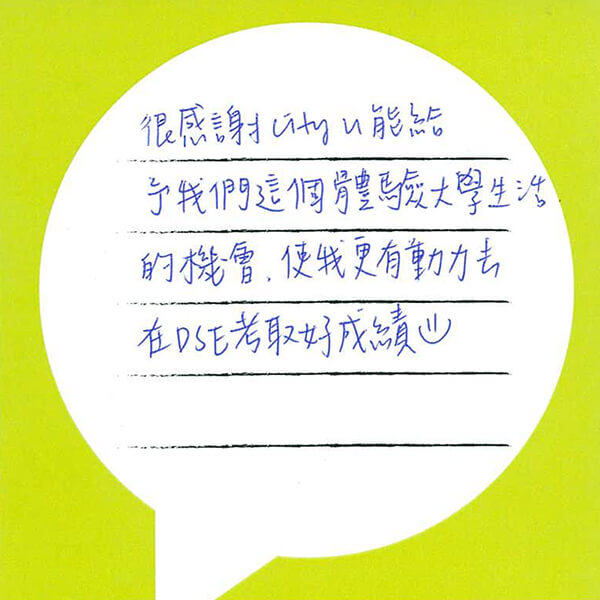 很感謝 City U 能給
予我們這個體驗大學生活
的機會，使我更有動力去
在DSE考取好成績